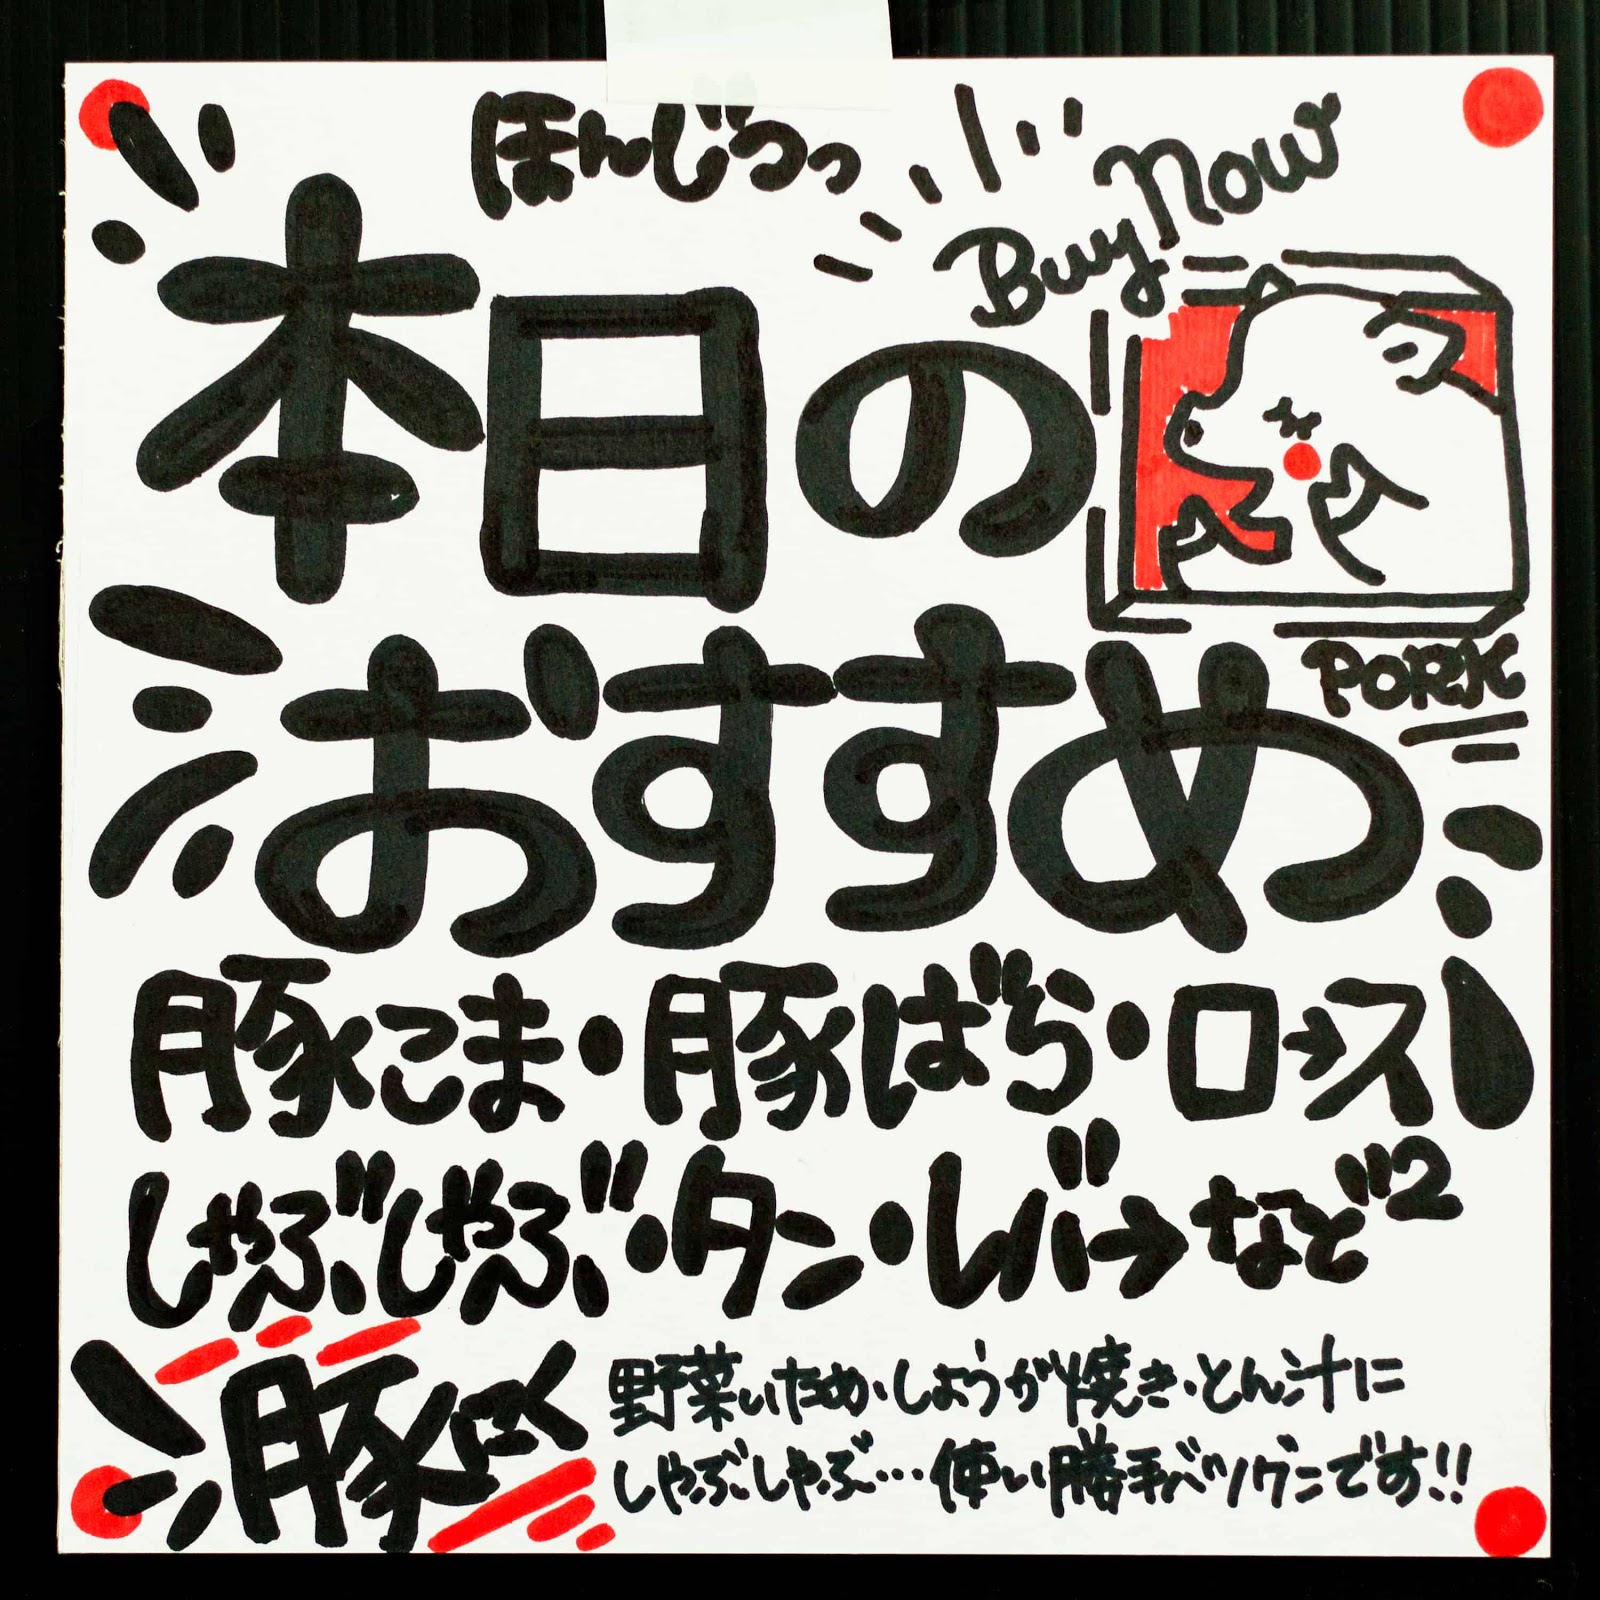 ほんじつっ
Buy Now
本日の
おすすめ
PORK
豚こま・豚ばら・ロース
しゃぶしゃぶ・タン・レバーなど2
豚にく
野菜いため・しょうが焼き・とん汁に
しゃぶしゃぶ…使い勝手バツグンです!!